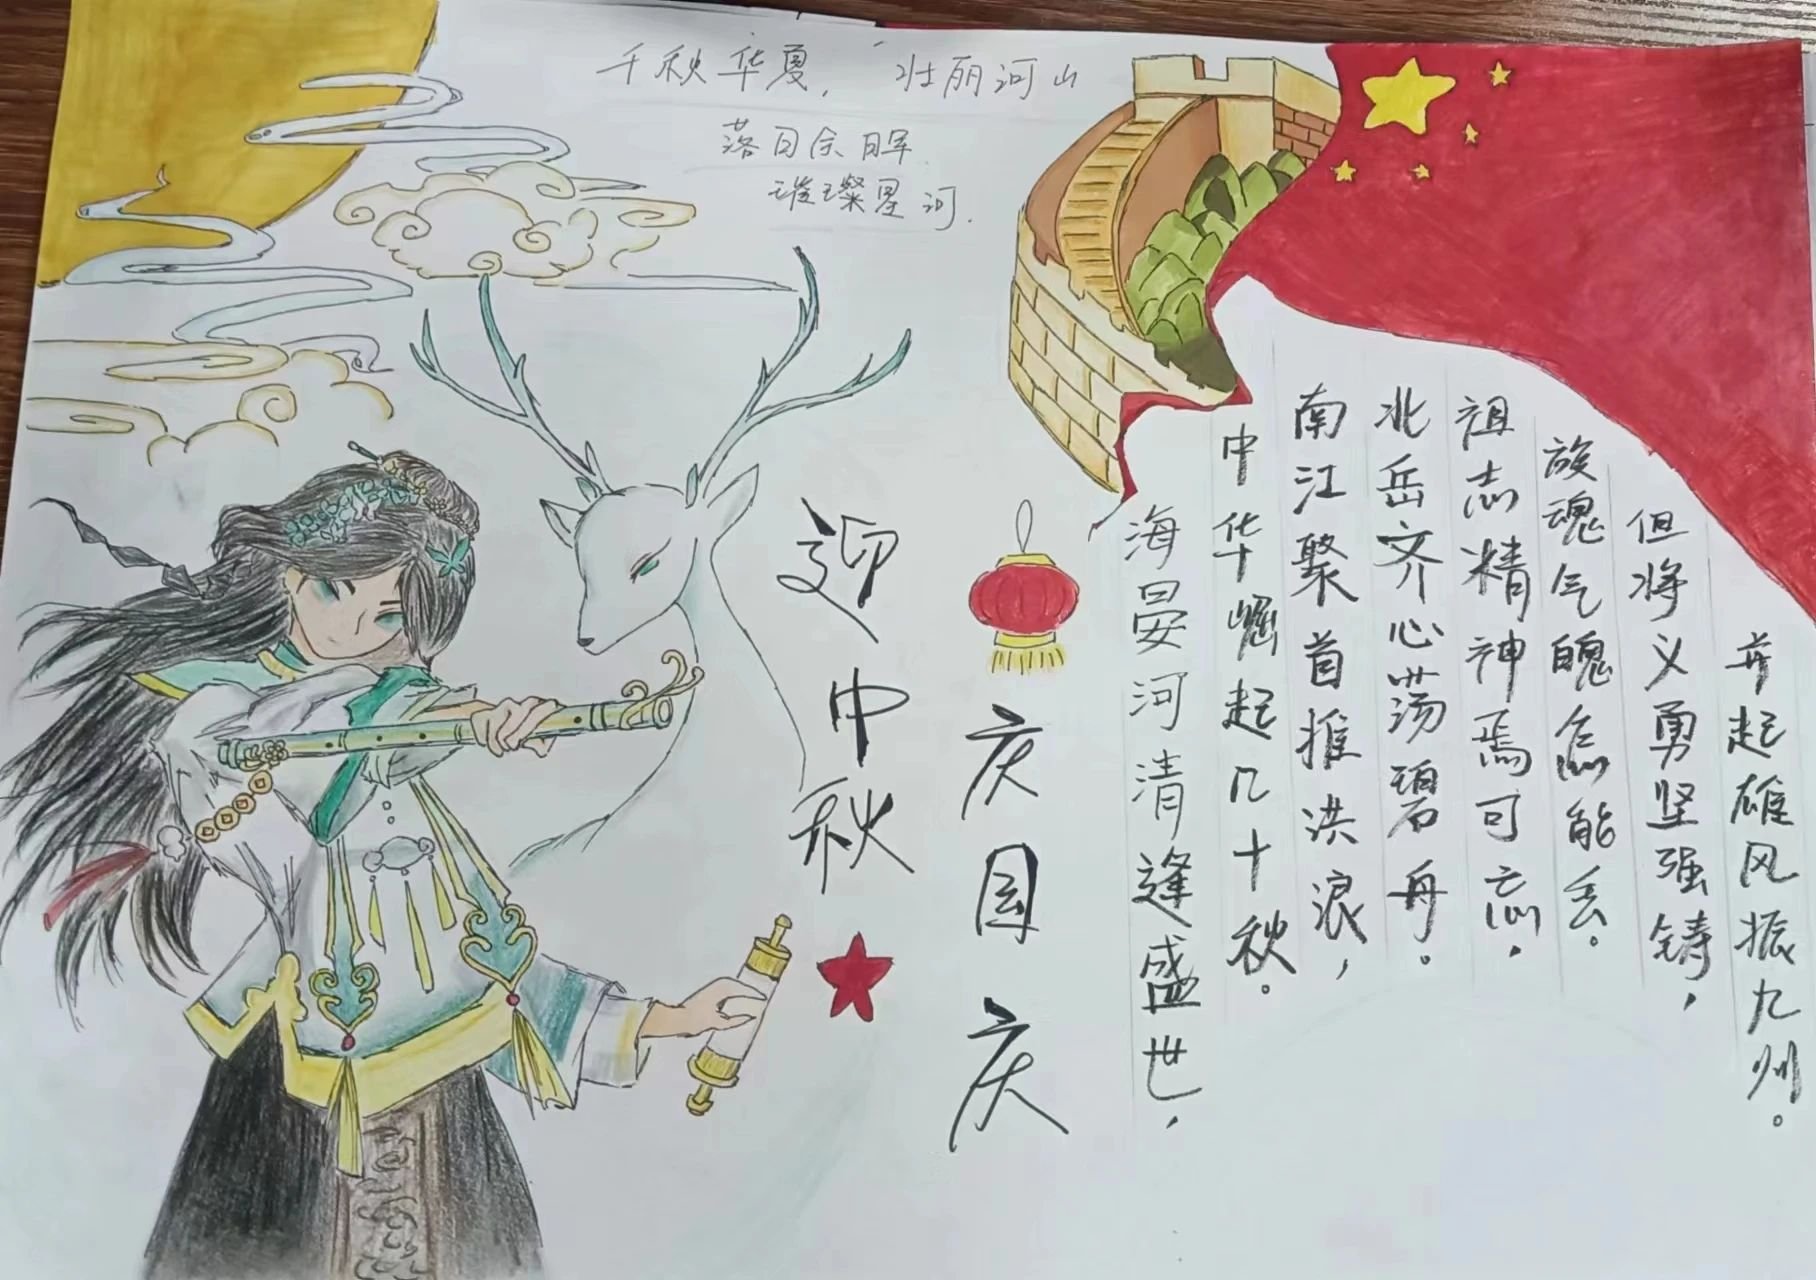 千秋华夏，壮丽河山
落日余晖
璀璨星河.
迎中秋
庆国庆
海晏河清逢盛世，
中华崛起几十秋。
南江聚首推洪浪，
北岳齐心荡碧舟。
祖志精神焉可忘，
族魂气魄怎能丢。
但将义勇坚强铸，
再起雄风振九州。